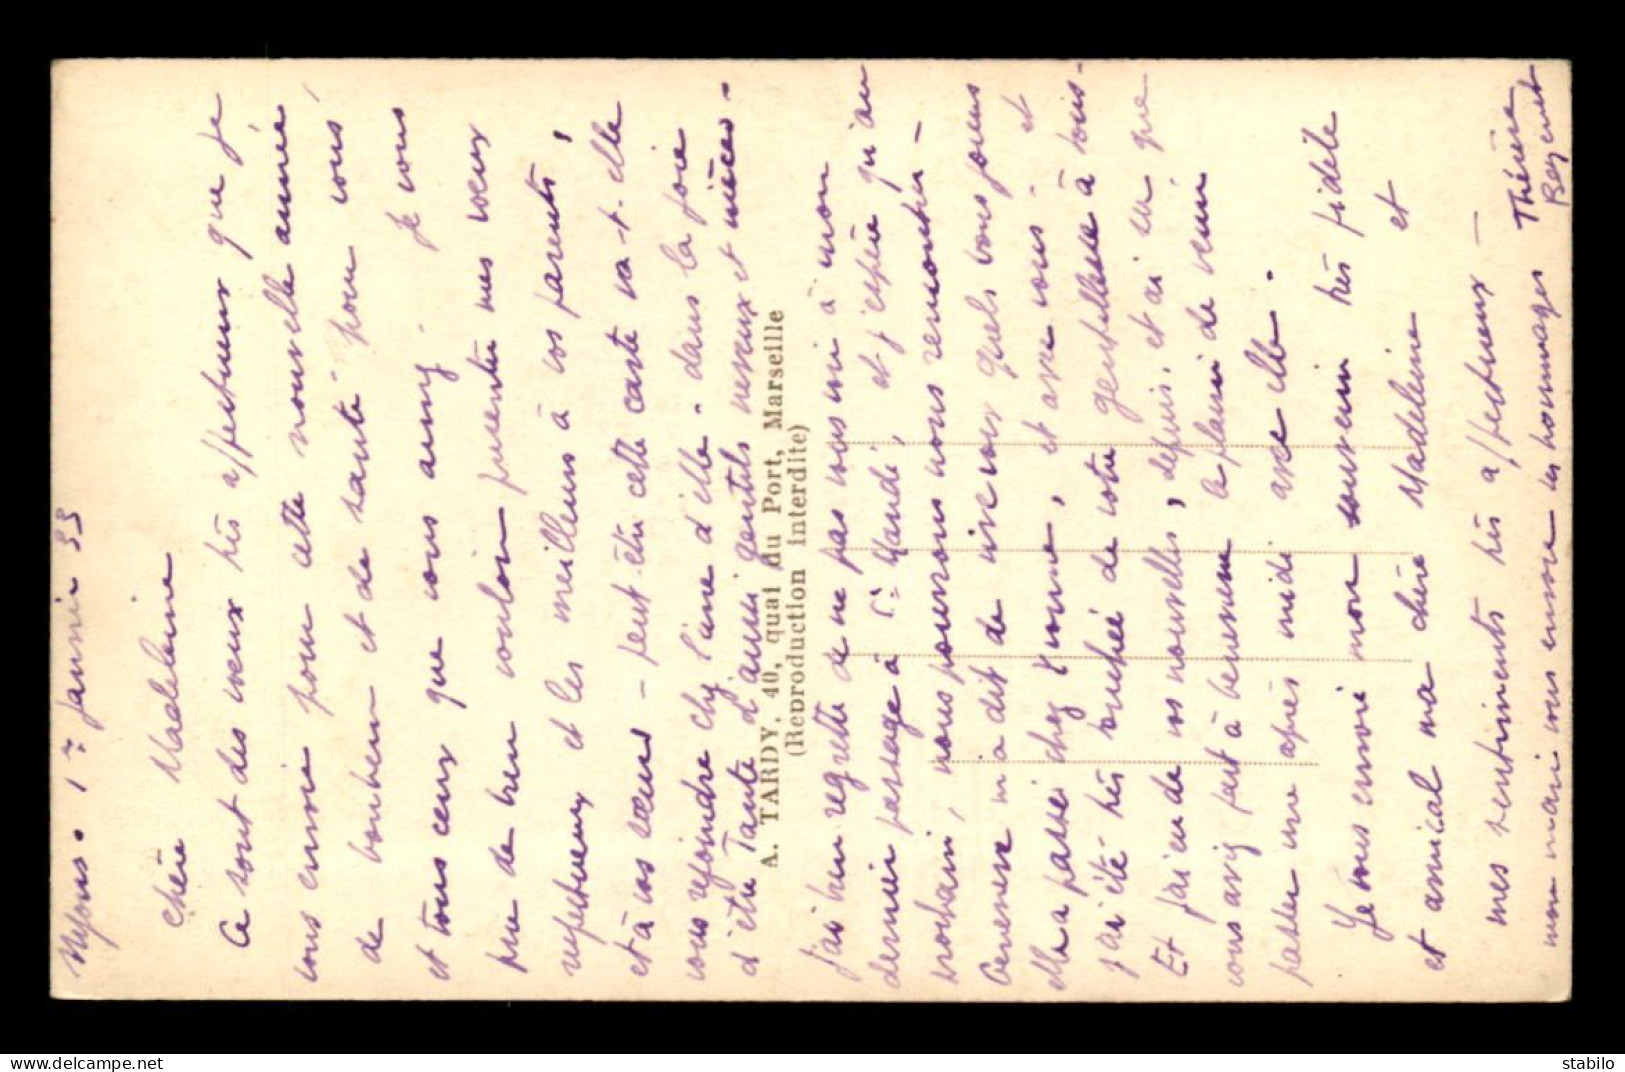 1er janvier 33
Chère Madeleine
Ce sont des voeux très affectueux que je
vous envoie pour cette nouvelle année
de bonheur et de santé pour vous
et tous ceux que vous aimez. je vous
prie de bien vouloir présenter mes voeux
respectueux et les meilleurs à vos parents,
et à vos soeurs - peut-être cette carte va-t-elle
vous rejoindre chez l'une d'elle. dans la joie
d'être Tante d'aussi gentils neveux et nièces -
A. TARDY, 40, quai du Port, Marseille
(Reproduction interdite)
J'ai bien regretté de ne pas vous voir à mon
dernier passage à et j'espère qu'au
prochain, nous pourrons nous rencontrer -
m'a dit de vive voix quels bons jours
elle a passés chez Yvonne, et avec vous - et
j'ai été très touchée de votre gentillesse à tous -
Et j'ai eu de vos nouvelles, depuis, et ai su que
vous aviez fait à la plaisir de venir
passer une après midi avec elle.
Je vous envoie mon souvenir très fidèle
et amical ma chère Madeleine et
mes sentiments très affectueux -
mon mari vous envoie ses hommages Thérèse